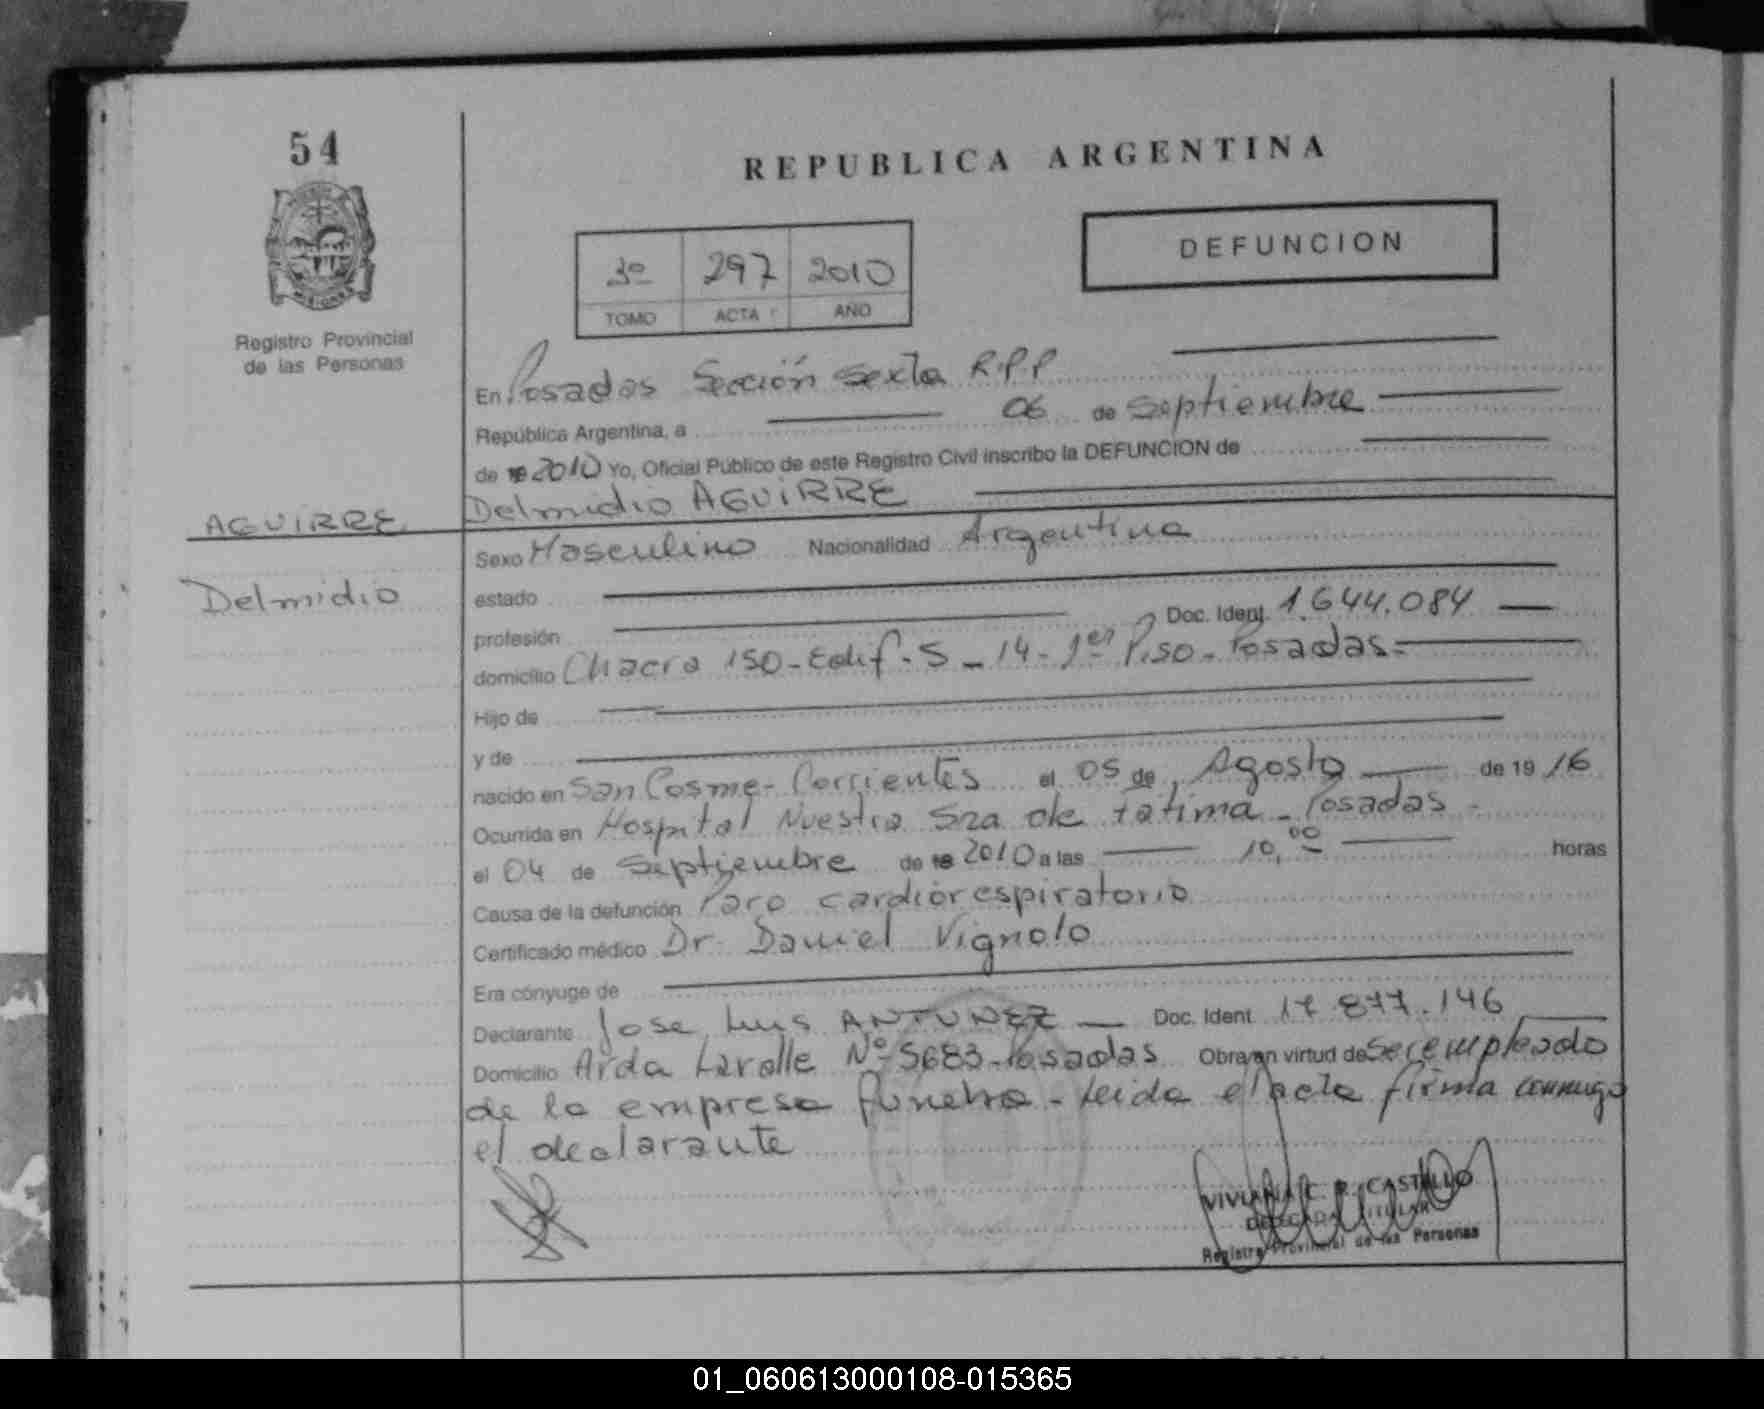 54
REPUBLICA ARGENTINA
MISIONES
Registro Provincial
de las Personas
3º 297 2010
TOMO ACTA AÑO
DEFUNCION
En Posadas Sección Sexta R.P.P
República Argentina, a 06 de Septiembre
de 2010 Yo, Oficial Público de este Registro Civil inscribo la DEFUNCION de
Delmidio AGUIRRE
AGUIRRE
Delmidio
Sexo Masculino Nacionalidad Argentina
estado
profesión Doc. Ident. 1.644.084
domicilio Chacra 150-Edif-S-14-1er Piso-Posadas-
Hijo de
y de
nacido en San Cosme-Corrientes el 05 de Agosto de 1916
Ocurrida en Hospital Nuestra Sra de Fatima-Posadas-
el 04 de Septiembre de 2010 a las 10,00 horas
Causa de la defunción Paro cardiorespiratorio
Certificado médico Dr. Daniel Vignolo
Era cónyuge de
Declarante Jose Luis ANTUNEZ Doc. Ident 17.877.146
Domicilio Avda Lavalle Nº 5683-Posadas Obra en virtud de Ser empleado
de la empresa funebre-Leida el acta firma conmigo
el declarante
VIVIANA C. R. CASTILLO
TITULAR
Registro Provincial de las Personas
01_060613000108-015365